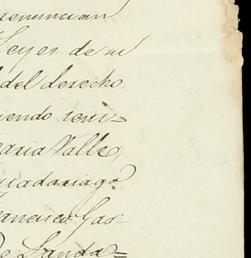 renuncian
Leyes de su
del derecho.
iendo reni=
aria Valle,
uadariaga
rancisco Gas-
De Landa=